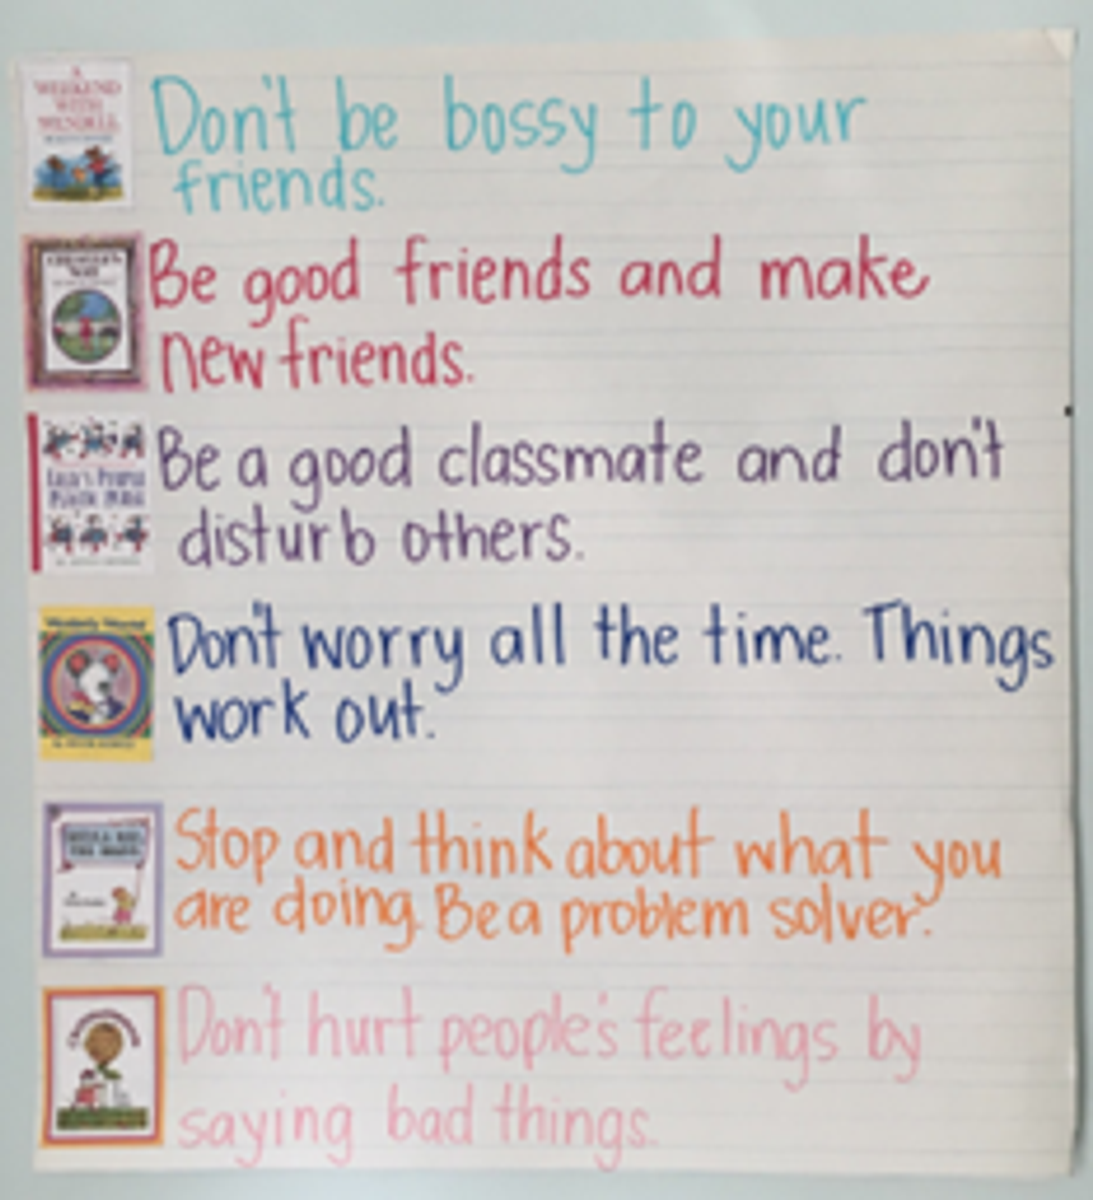 A
WEEKEND
WITH
WENDELL
Don't be bossy to your
friends.
CHESTER'S
WAY
Be good friends and make
new friends.
LILLY'S PURPLE
PLASTIC PURSE
Be a good classmate and don't
disturb others.
Wemberly Worried
Don't worry all the time. Things
work out.
Stop and think about what you
are doing. Be a problem solver.
Chrysanthemum
Don't hurt people's feelings by
saying bad things.